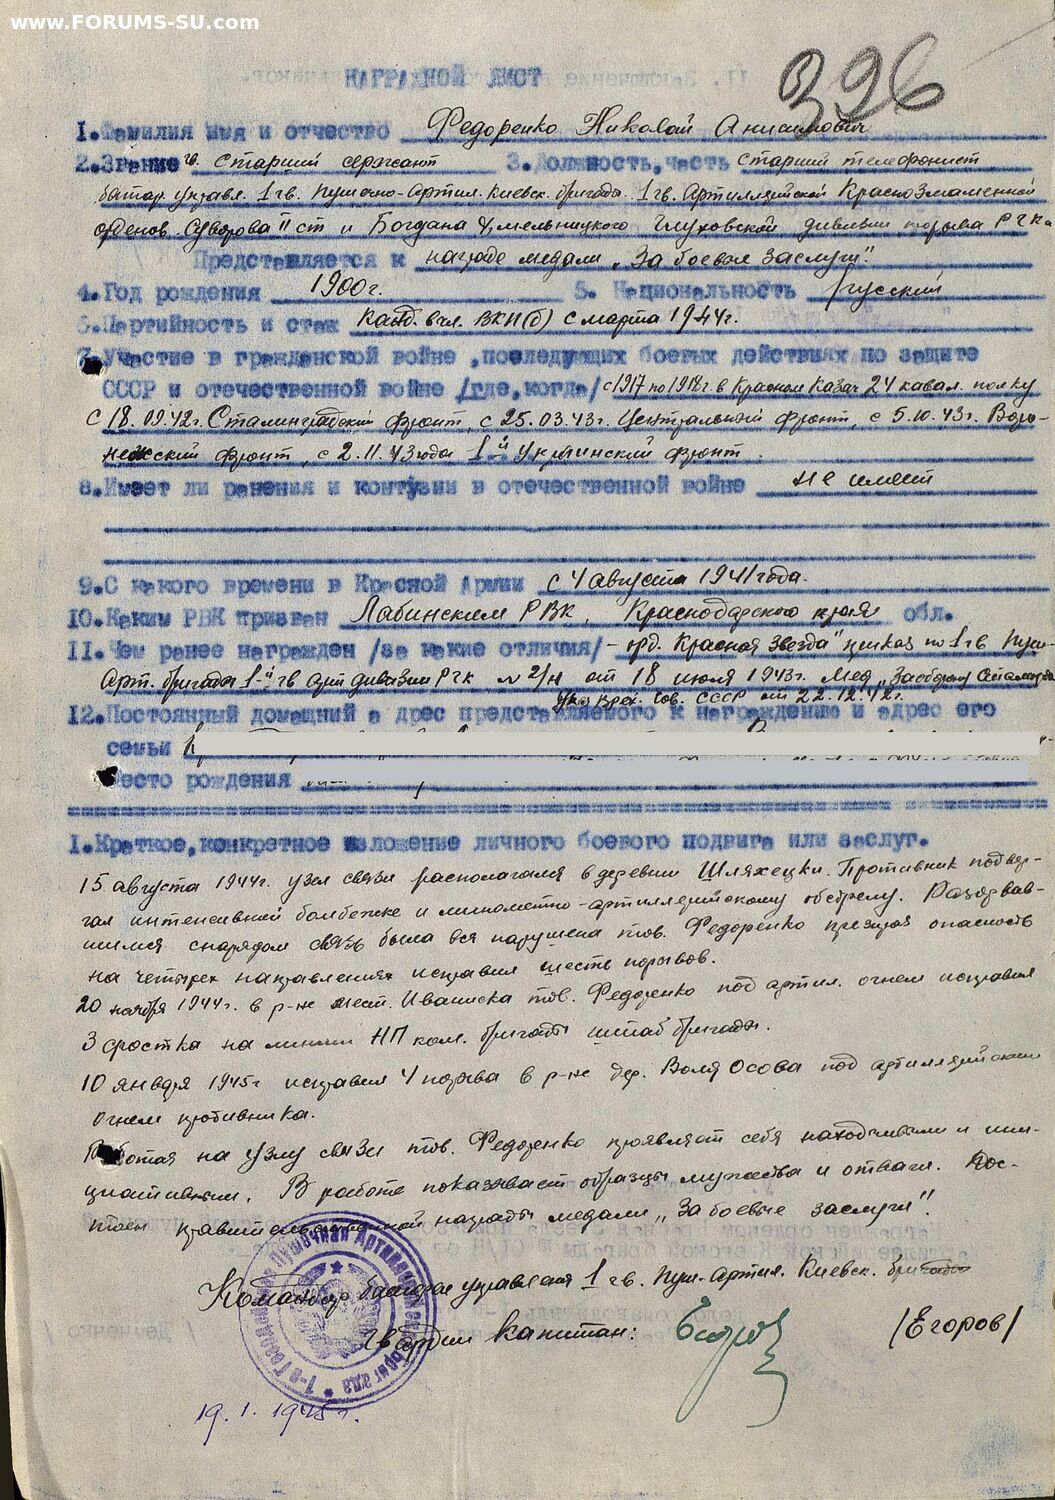 www.FORUMS-SU.com
326
НАГРАДНОЙ ЛИСТ
1.Фамилия имя и отчество Федоренко Николай Анисимович
2.Звание гв. старший сержант 3.Должность,часть старший телефонист
батар. управл. 1 гв. пушечно-артил. киевск. бригады 1 гв. Артиллерийской Краснознаменной
орденов Суворова II ст и Богдана Хмельницкого Глуховской дивизии прорыва РГК
Представляется к награде медали „За боевые заслуги".
4.Год рождения 1900г. 5. Национальность русский
6.Партийность и стаж канд. в чл. ВКП(б) с марта 1944г.
7.Участие в гражданской войне ,последующих боевых действиях по защите
СССР и отечественной войне /где,когда/ с 1917 по 1918г. в Красном Казач. 24 кавал. полку
с 18.09.42г. Сталинградский фронт, с 25.03.43г. Центральный фронт, с 5.10.43г. Воро-
нежский фронт, с 2.11.43 года 1-й Украинский фронт.
8.Имеет ли ранения и контузии в отечественной войне не имеет
9.С какого времени в Красной Армии с 4 августа 1941 года.
10.Каким РВК призван Лабинским РВК, Краснодарского края обл.
11.Чем ранее награжден /за какие отличия/ - орд. „Красная Звезда" приказ по 1 гв. Пуш-
Арт. бригаде 1-й гв арт дивизии РГК № 2/н от 18 июля 1943г. Мед. „За оборону Сталинграда
Указ През. Сов. СССР от 22.12.42г.
12.Постоянный домашний а дрес представляемого к награждению и адрес его
семьи
Место рождения
1.Краткое,конкретное изложение личного боевого подвига или заслуг.
15 августа 1944г. узел связи располагался в деревни Шляхецки. Противник подвер-
гал интенсивной бомбежке и минометно-артиллерийскому обстрелу. Разорвав-
шимся снарядом связь была вся нарушена тов. Федоренко презирая опасность
на четырех направлениях исправил шесть порывов.
20 ноября 1944г. в р-не мест. Иваниска тов. Федоренко под артил. огнем исправил
3 сростка на линии НП ком. бригады штаб бригады.
10 января 1945г исправил 4 порыва в р-не дер. Воля Осова под артиллерийским
огнем противника.
Работая на узлу связи тов. Федоренко проявляет себя находчивым и ини-
циативным. В работе показывает образцы мужества и отваги. Дос-
тоен правительственной награды медали „За боевые заслуги".
Командир батареи управления 1 гв. Пуш-Артил. Киевск. бригады
гвардии капитан: /Егоров/
1-я Гвардейская Пушечная Артиллерийская Бригада
19.1.1945г.